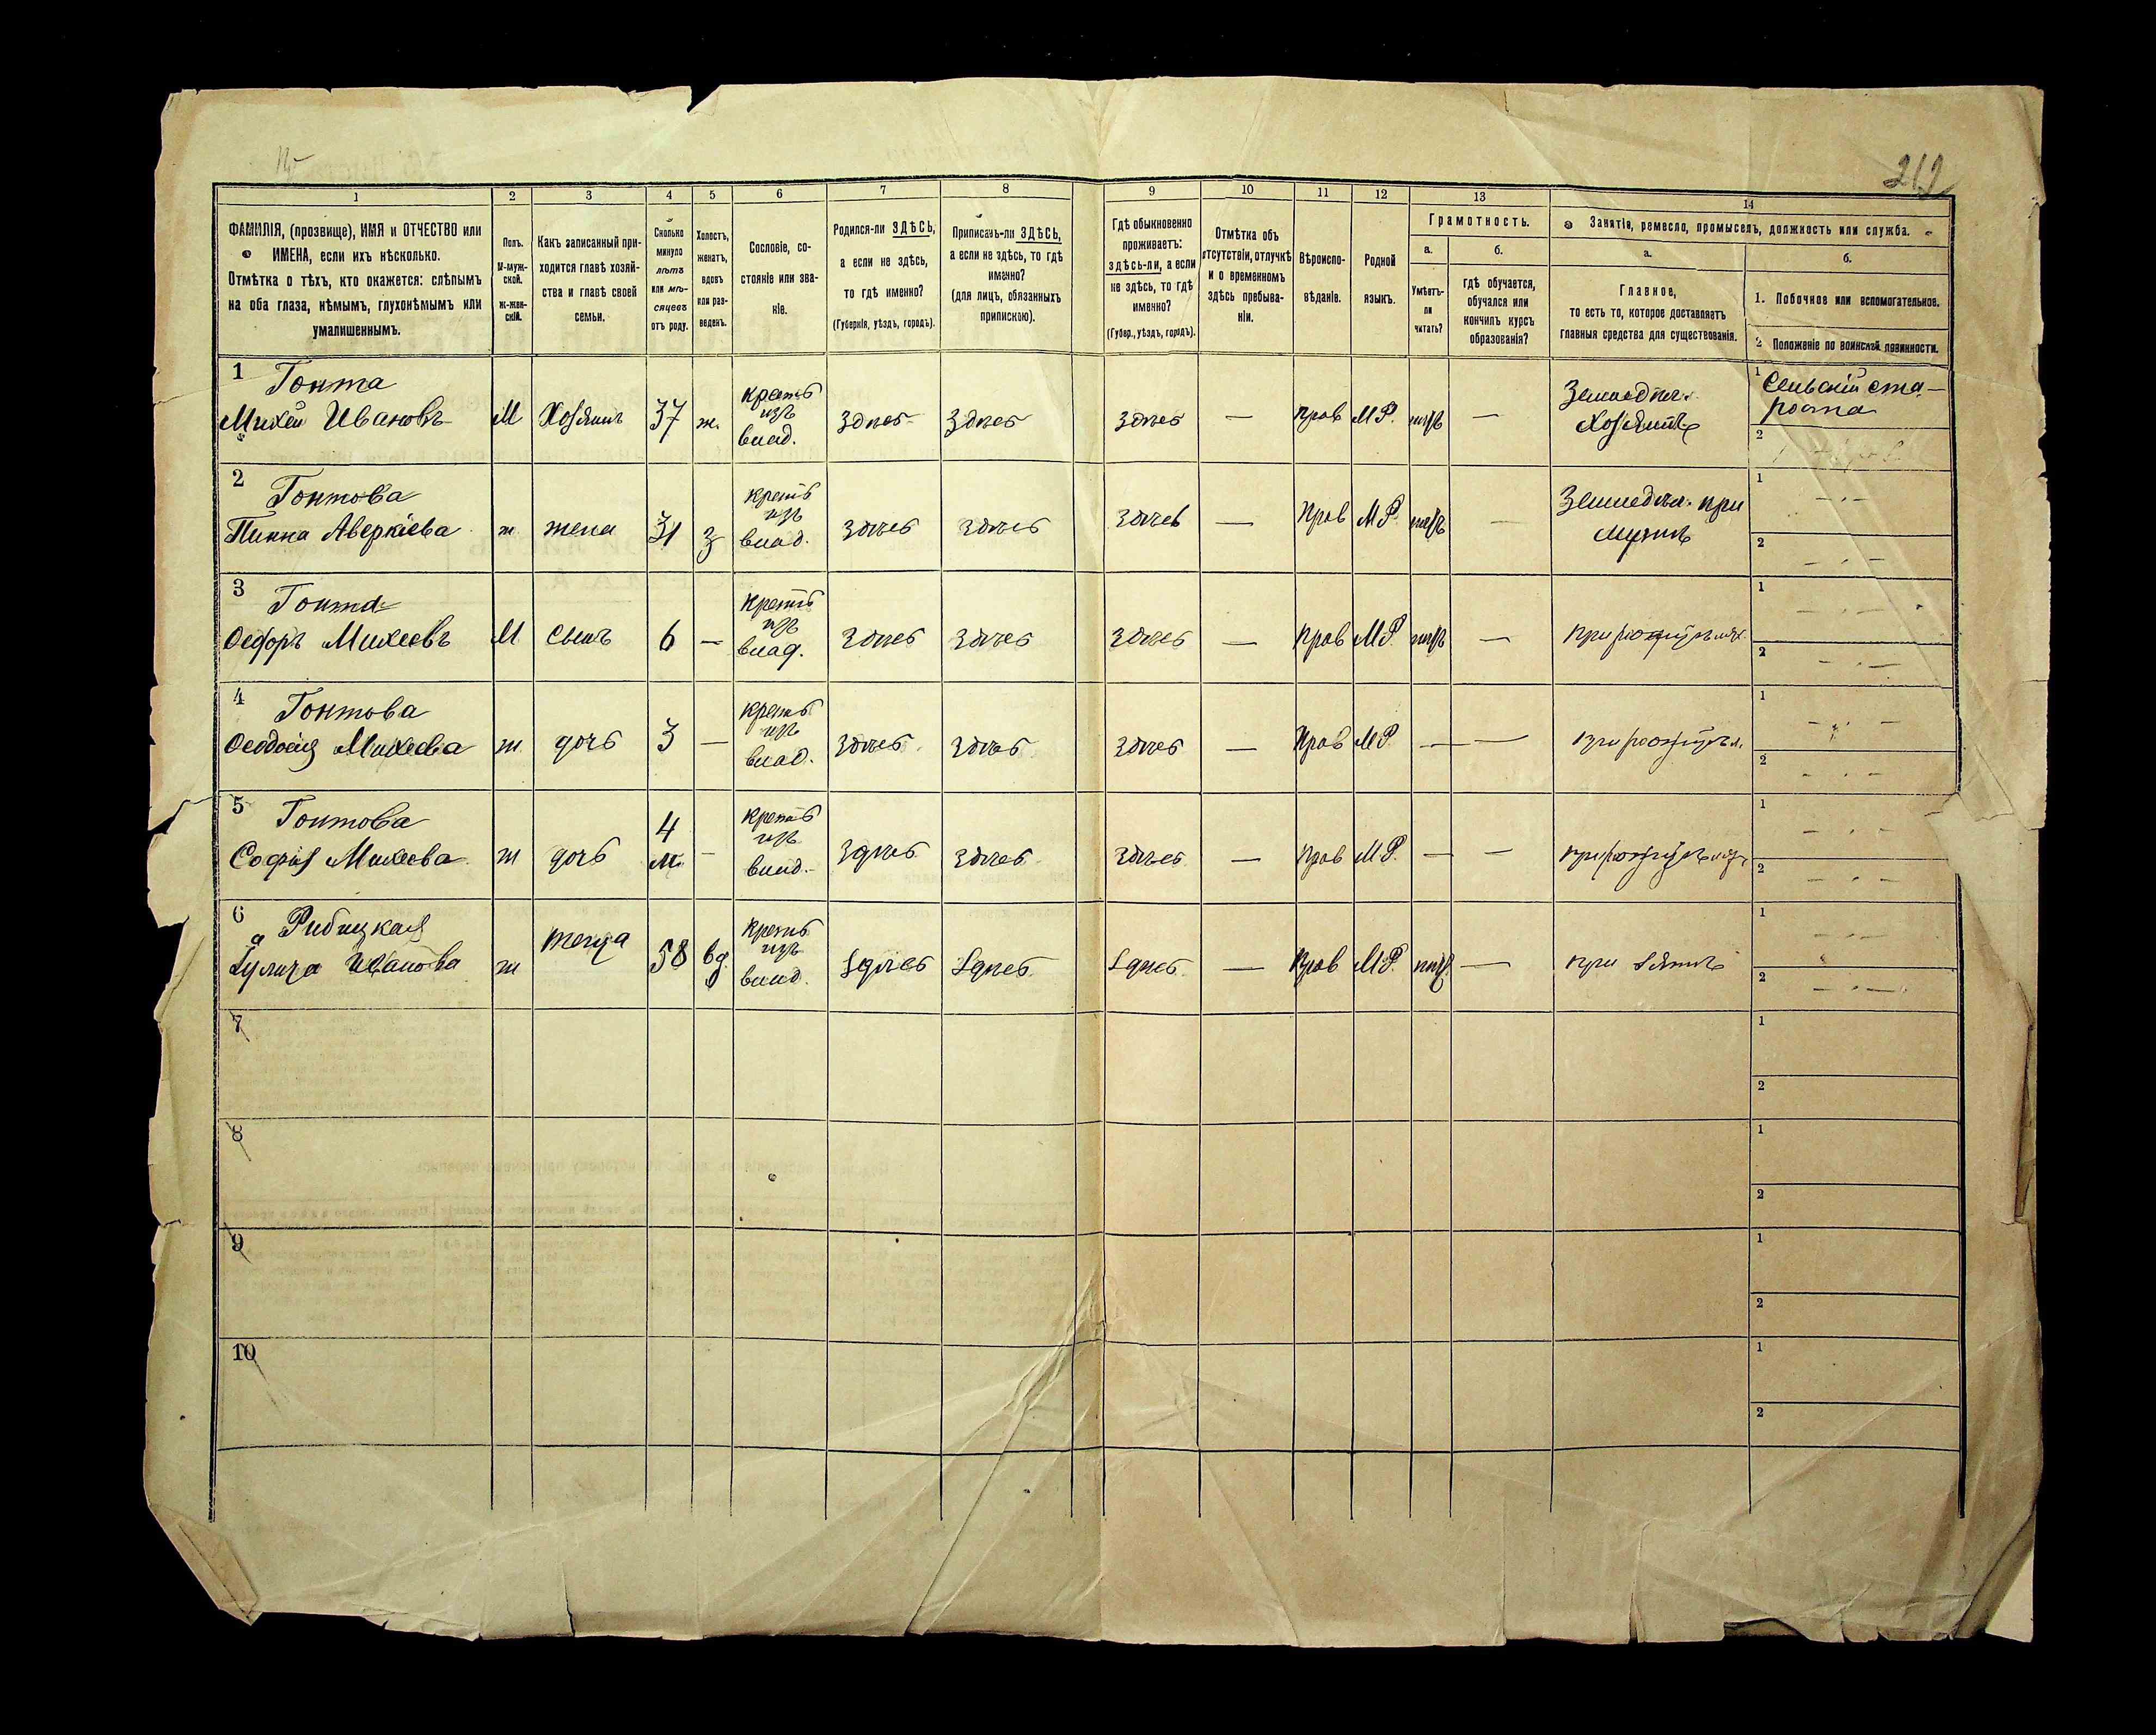 212
1
2
3
4
5
6
7
8
9
10
11
12
13
14
ФАМИЛІЯ, (прозвище), ИМЯ и ОТЧЕСТВО или
ИМЕНА, если ихъ нѣсколько.
Отмѣтка о тѣхъ, кто окажется: слѣпымъ
на оба глаза, нѣмымъ, глухонѣмымъ или
умалишеннымъ.
Полъ.
М-муж-
ской.
Ж-жен-
скій.
Какъ записанный при-
ходится главѣ хозяй-
ства и главѣ своей
семьи.
Сколько
минуло
лѣтъ
или мѣ-
сяцевъ
отъ роду.
Холостъ,
женатъ,
вдовъ
или раз-
веденъ.
Сословіе, со-
стояніе или зва-
ніе.
Родился-ли ЗДѢСЬ,
а если не здѣсь,
то гдѣ именно?
(Губернія, уѣздъ, городъ).
Приписанъ-ли ЗДѢСЬ,
а если не здѣсь, то гдѣ
именно?
(для лицъ, обязанныхъ
припискою).
Гдѣ обыкновенно
проживаетъ:
здѣсь-ли, а если
не здѣсь, то гдѣ
именно?
(Губер., уѣздъ, городъ).
Отмѣтка объ
отсутствіи, отлучкѣ
и о временномъ
здѣсь пребыва-
ніи.
Вѣроиспо-
вѣданіе.
Родной
языкъ.
Грамотность.
а.
Умѣетъ-
ли
читать?
б.
гдѣ обучается,
обучался или
кончилъ курсъ
образованія?
Занятія, ремесло, промыселъ, должность или служба.
а.
Главное,
то есть то, которое доставляетъ
главныя средства для существованія.
б.
1. Побочное или вспомогательное.
2 Положеніе по воинской повинности.
1 Гонта
Михей Ивановъ М Хозяинъ 37 ж. крестъ изъ влад. Здѣсь Здѣсь Здѣсь — Прав М Р. — Земледѣл. Хозяинъ
1 Сельскій ста-
роста
2
2 Гонтова
Аверкіева ж жена 31 з крестъ изъ влад. здѣсь здѣсь здѣсь — Прав М Р. — Земледѣл. при мужѣ
1 — . —
2 — . —
3 Гонта
Феодоръ Михеевъ М сынъ 6 — крестъ изъ влад. Здѣсь здѣсь здѣсь — прав М Р. —
1 — . —
2 — . —
4 Гонтова
Феодосія Михеева ж. дочь 3 — крестъ изъ влад. здѣсь здѣсь здѣсь — Прав М Р. — —
1 — . —
2 — . —
5 Гонтова
Софія Михеева ж дочь 4 м. — крестъ изъ влад. здѣсь здѣсь здѣсь — прав М Р. — —
1 — . —
2 — . —
6 Рибицкая
Ивановна ж теща 58 вд. крестъ изъ влад. здѣсь здѣсь здѣсь — прав М Р. — при зятѣ
1 — . —
2 — . —
7
1
2
8
1
2
9
1
2
10
1
2